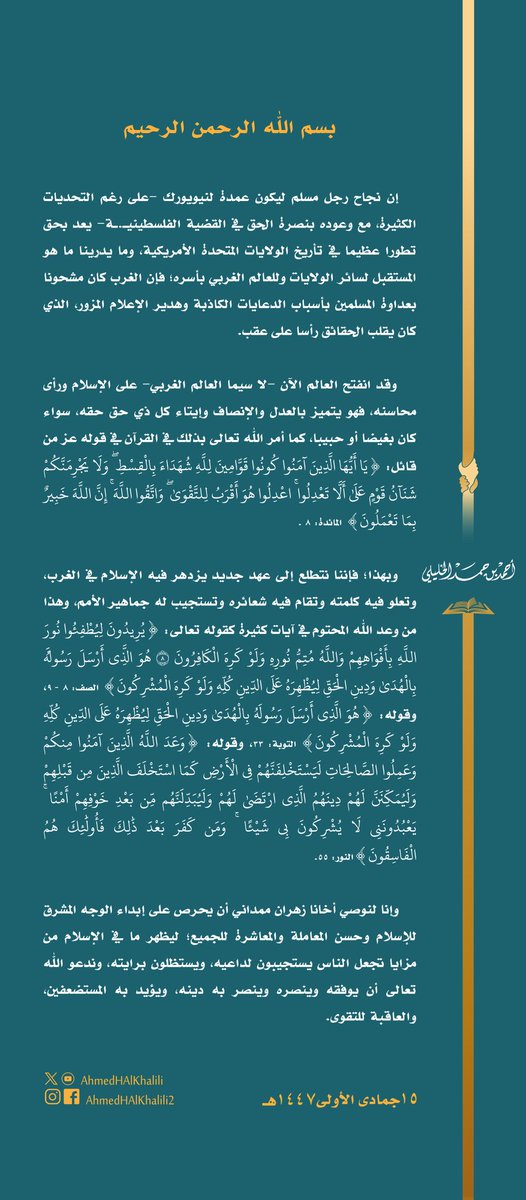 بسم الله الرحمن الرحيم
إن نجاح رجل مسلم ليكون عمدة لنيويورك -على رغم التحديات
الكثيرة، مع وعوده بنصرة الحق في القضية الفلسطينيـــة- يعد بحق
تطورا عظيما في تأريخ الولايات المتحدة الأمريكية، وما يدرينا ما هو
المستقبل لسائر الولايات وللعالم الغربي بأسره؛ فإن الغرب كان مشحونا
بعداوة المسلمين بأسباب الدعايات الكاذبة وهدير الإعلام المزور، الذي
كان يقلب الحقائق رأسا على عقب.
وقد انفتح العالم الآن -لا سيما العالم الغربي- على الإسلام ورأى
محاسنه، فهو يتميز بالعدل والإنصاف وإيتاء كل ذي حق حقه، سواء
كان بغيضا أو حبيبا، كما أمر الله تعالى بذلك في القرآن في قوله عز من
قائل: ﴿يَا أَيُّهَا الَّذِينَ آمَنُوا كُونُوا قَوَّامِينَ لِلَّهِ شُهَدَاءَ بِالْقِسْطِ ۖ وَلَا يَجْرِمَنَّكُمْ
شَنَآنُ قَوْمٍ عَلَىٰ أَلَّا تَعْدِلُوا ۚ اعْدِلُوا هُوَ أَقْرَبُ لِلتَّقْوَىٰ ۖ وَاتَّقُوا اللَّهَ ۚ إِنَّ اللَّهَ خَبِيرٌ
بِمَا تَعْمَلُونَ﴾ المائدة: ٨ .
وبهذا؛ فإننا نتطلع إلى عهد جديد يزدهر فيه الإسلام في الغرب،
وتعلو فيه كلمته وتقام فيه شعائره وتستجيب له جماهير الأمم، وهذا
من وعد الله المحتوم في آيات كثيرة كقوله تعالى: ﴿يُرِيدُونَ لِيُطْفِئُوا نُورَ
اللَّهِ بِأَفْوَاهِهِمْ وَاللَّهُ مُتِمُّ نُورِهِ وَلَوْ كَرِهَ الْكَافِرُونَ ۝٨ هُوَ الَّذِي أَرْسَلَ رَسُولَهُ
بِالْهُدَىٰ وَدِينِ الْحَقِّ لِيُظْهِرَهُ عَلَى الدِّينِ كُلِّهِ وَلَوْ كَرِهَ الْمُشْرِكُونَ﴾ الصف: ٨ - ٩،
وقوله: ﴿هُوَ الَّذِي أَرْسَلَ رَسُولَهُ بِالْهُدَىٰ وَدِينِ الْحَقِّ لِيُظْهِرَهُ عَلَى الدِّينِ كُلِّهِ
وَلَوْ كَرِهَ الْمُشْرِكُونَ﴾ التوبة: ٣٣، وقوله: ﴿وَعَدَ اللَّهُ الَّذِينَ آمَنُوا مِنكُمْ
وَعَمِلُوا الصَّالِحَاتِ لَيَسْتَخْلِفَنَّهُمْ فِي الْأَرْضِ كَمَا اسْتَخْلَفَ الَّذِينَ مِن قَبْلِهِمْ
وَلَيُمَكِّنَنَّ لَهُمْ دِينَهُمُ الَّذِي ارْتَضَىٰ لَهُمْ وَلَيُبَدِّلَنَّهُم مِّن بَعْدِ خَوْفِهِمْ أَمْنًا ۚ
يَعْبُدُونَنِي لَا يُشْرِكُونَ بِي شَيْئًا ۚ وَمَن كَفَرَ بَعْدَ ذَٰلِكَ فَأُولَٰئِكَ هُمُ
الْفَاسِقُونَ﴾ النور: ٥٥.
وإنا لنوصي أخانا زهران ممداني أن يحرص على إبداء الوجه المشرق
للإسلام وحسن المعاملة والمعاشرة للجميع؛ ليظهر ما في الإسلام من
مزايا تجعل الناس يستجيبون لداعيه، ويستظلون برايته، وندعو الله
تعالى أن يوفقه وينصره وينصر به دينه، ويؤيد به المستضعفين،
والعاقبة للتقوى.
أحمد بن حمد الخليلي
١٥جمادى الأولى١٤٤٧هـ
AhmedHAlKhalili
AhmedHAlKhalili2